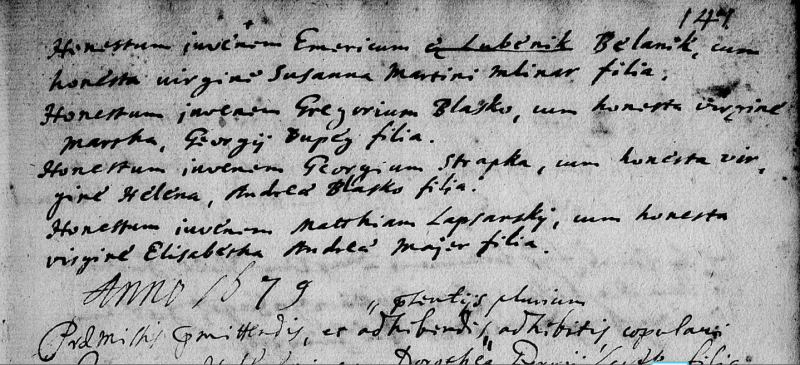 141
Honestum juvenem Emericum è Lubenik Belanik, cum
honesta virginè Susanna Martini Mlinar filia.
Honestum juvenem Gregorium Blasko, cum honesta virginè
Martha, Georgij Bupéz filia.
Honestum juvenem Georgium Strapka, cum honesta vir,
ginè Helena, Andreæ Blasko filia.
Honestum juvenem Matthiam Lapsarskÿ, cum honesta
virginè Elisabetha Andreæ Majer filia.
Anno 1679
plurium
Præmissis pmittendis, et adhibendis, adhibitis copulavi
Dorothea filia